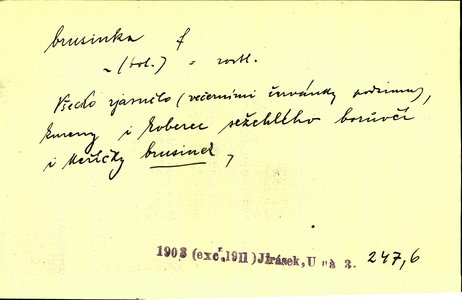 brusinka f
~ (bot.) = rostl.
Všecko zjasnilo (večerními červánky podzimu),
kmeny i koberec sežehlého borůvčí
i keříčky brusinek,
1903 (exc. 1911) Jirásek, U nás 3. 247,6